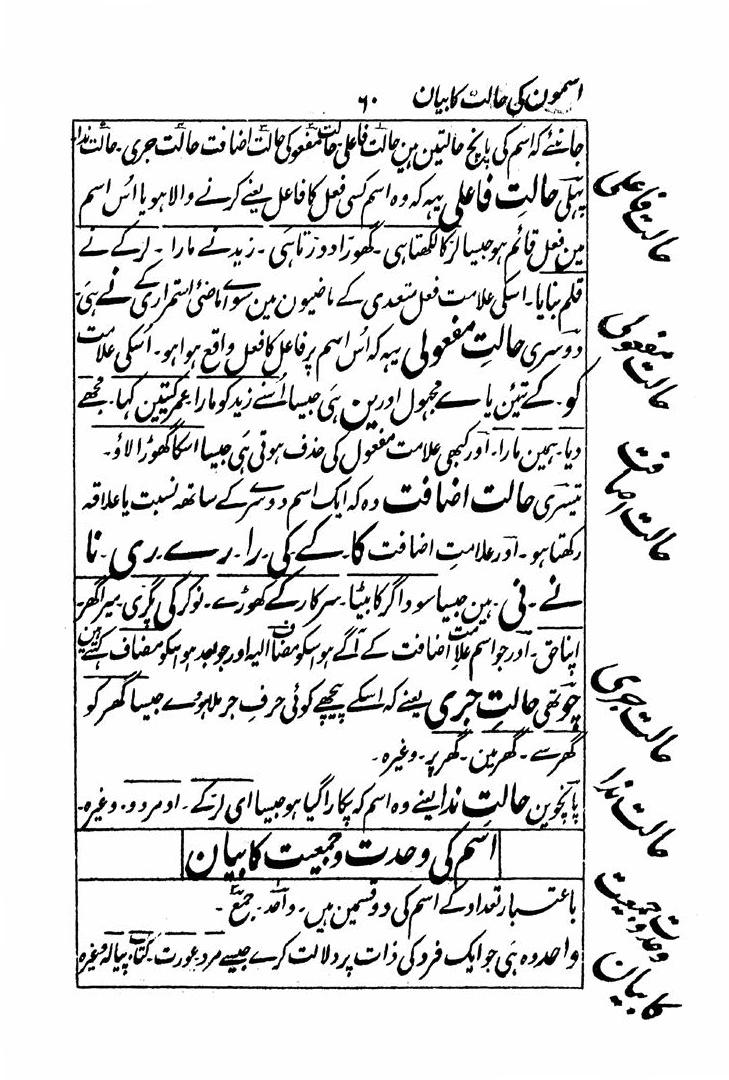 اسمون کی حالت کا بیان ۶۰
جانئے کہ اسم کی پانچ حالتین ہین حالت فاعلی حالت مفعولی حالت اضافت حالت جری ۔ حالت ندا
پہلی حالتِ فاعلی یہہ کہ وہ اسم کسی فعل کا فاعل یعنے کرنے والا ہو یا اُس اسم
مین فعل قائم ہو جیسا لڑکا لکھتا ہی ۔ گھوڑا دوڑتا ہی ۔ زید نے مارا ۔ لڑکے نے
قلم بنایا ۔ اسکی علامت فعل متعدی کے ماضیون مین سواے ماضئ استمراری کے نے ہی ۔
دوسری حالتِ مفعولی یہہ کہ اُس اسم پر فاعل کا فعل واقع ہوا ہو ۔ اُسکی علامت
کو ۔ کے تئین یا ے مجہول اور ین ہی جیسا اُسنے زید کو مارا عمر کیتین کہا ۔ مجھے
دیا ۔ ہمین مارا ۔ اور کبھی علامت مفعول کی حذف ہوتی ہی جیسا اسکا گھوڑا لاؤ ۔
تیسری حالت اضافت وہ کہ ایک اسم دوسرے کے ساتھہ نسبت یا علاقہ
رکھتا ہو ۔ اور علامتِ اضافت کا ۔ کے ۔ کی ۔ را ۔ رے ۔ ری ۔ نا
نے ۔ نی ۔ ہین جیسا سوداگر کا بیٹا ۔ سرکار کے گھوڑے ۔ نوکر کی پگڑی ۔ میرا گھر ۔
اپنا حق ۔ اور جو اسم علامت اضافت کے آگے ہو سکو مضاف الیہ اور جو بعد ہو سکو مضاف کہتے ہین
چوتھی حالتِ جری یعنے کہ اسکے پیچھے کوئی حرفِ جر ملا ہووے جیسا گھر کو
گھر سے ۔ گھر مین ۔ گھر پر ۔ وغیرہ ۔
پانچوین حالتِ ندا یعنے وہ اسم کہ پکارا گیا ہو جیسا ای لڑکے ۔ او مردو ۔ وغیرہ ۔
اسم کی وحدت و جمعیت کا بیان
باعتبار تعداد کے اسم کی دو قسمین ہین ۔ واحد ۔ جمع ۔
واحد وہ ہی جو ایک فرد کی ذات پر دلالت کرے جیسے مرد ۔ عورت ۔ کتاب ۔ پیالہ وغیرہ
حالت فاعلی
حالت مفعولی
حالت اضافت
حالت جری
حالت ندا
وحدت و جمعیت
کا بیان